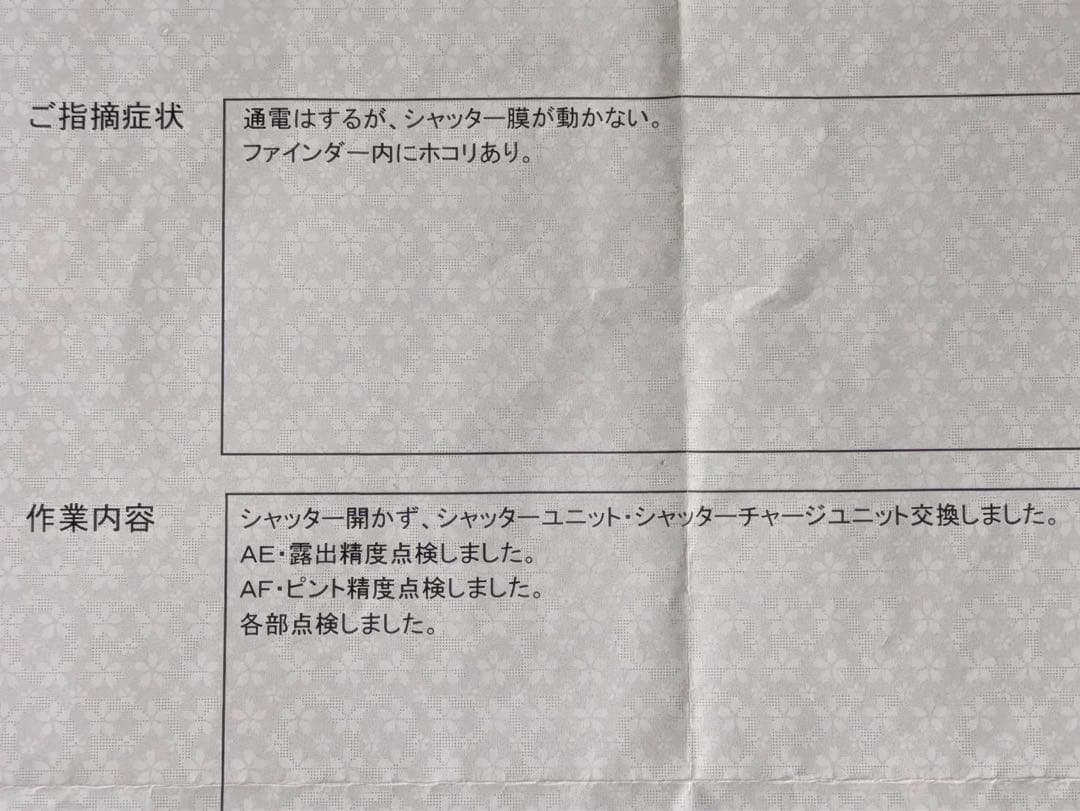 ご指摘症状
通電はするが、シャッター膜が動かない。
ファインダー内にホコリあり。
作業内容
シャッター開かず、シャッターユニット・シャッターチャージユニット交換しました。
AE・露出精度点検しました。
AF・ピント精度点検しました。
各部点検しました。